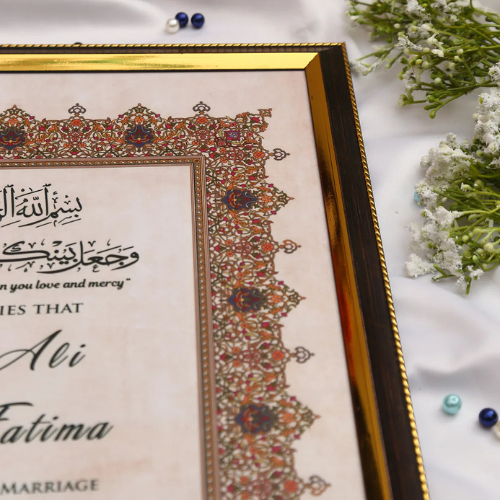 بِسْمِ اللّٰهِ
وَجَعَلَ بَيْنَكُ
n you love and mercy"
IES THAT
Ali
Fatima
MARRIAGE